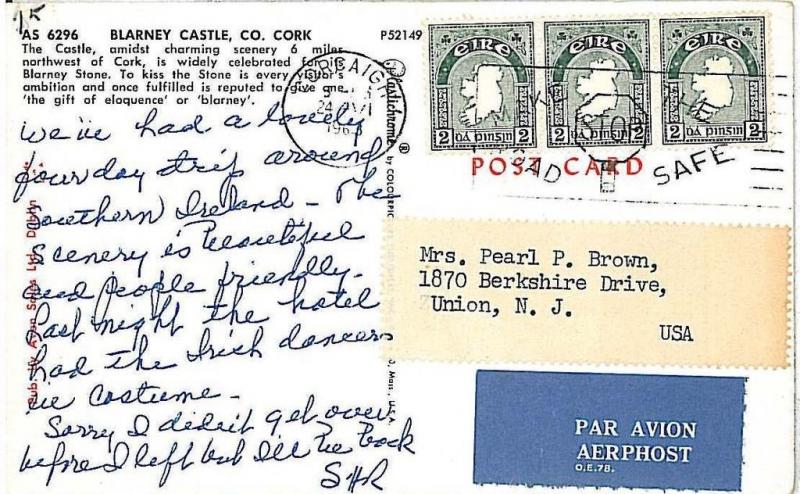 AS 6296 BLARNEY CASTLE, CO. CORK P52149
The Castle, amidst charming scenery 6 miles
northwest of Cork, is widely celebrated for its
Blarney Stone. To kiss the Stone is every visitor's
ambition and once fulfilled is reputed to give one
'the gift of eloquence' or 'blarney'.
We've had a lovely
four day trip around
Southern Ireland - The
scenery is beautiful
and people friendly.
Last night the hotel
had the Irish dancers
in costume.
Sorry I didn't get over
before I left but I'll be back
SHR
ÉIRE ÉIRE ÉIRE
2 DÁ PINGIN 2 2 DÁ PINGIN 2 2 DÁ PINGIN 2
STOP
ROAD SAFE
POST CARD
Mrs. Pearl P. Brown,
1870 Berkshire Drive,
Union, N. J.
USA
PAR AVION
AERPHOST
O.E.78.
Plastichrome ® by COLORPIC
Mass., U.S.A.